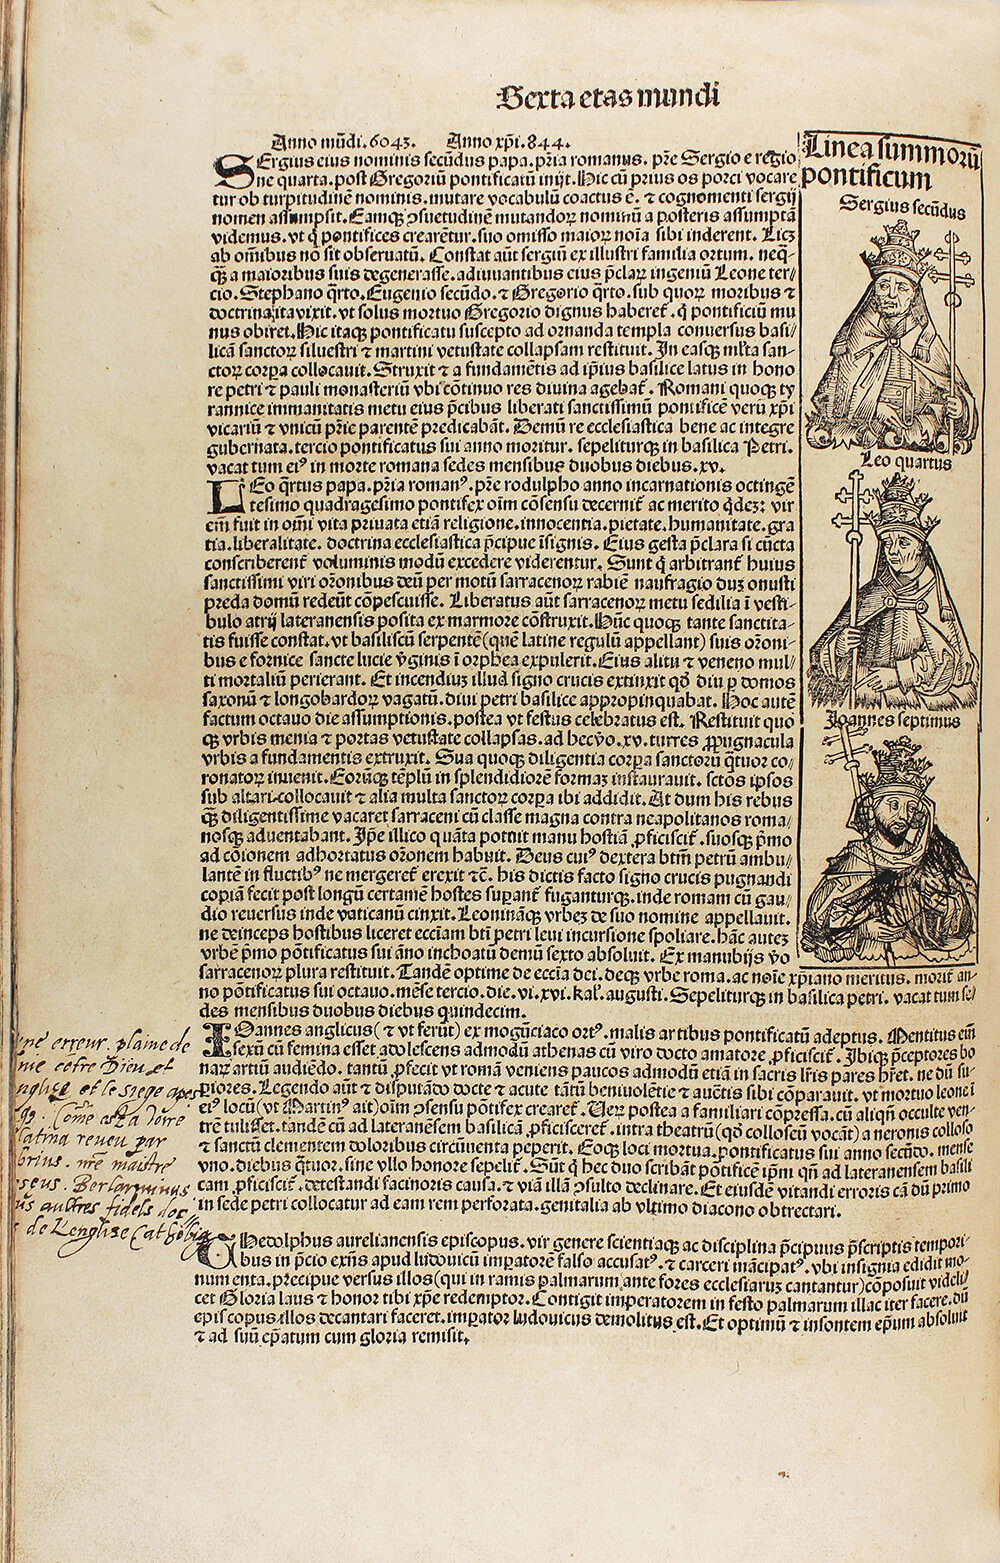 Sexta etas mundi
Anno mũdi. 6043. Anno xp̃i. 844.
SErgius eius nominis secũdus papa. pr̃ia romanus. pr̃e Sergio e regio
ne quarta. post Gregoriũ pontificatũ inijt. Hic cũ prius os porci vocare
tur ob turpitudinẽ nominis. mutare vocabulũ coactus ẽ. ⁊ cognomenti sergij
nomen assumpsit. Eamqꝫ ↄsuetudinẽ mutandoꝝ nominũ a posteris assumptã
videmus. vt q̃ pontifices crearẽtur. suo omisso maioꝝ noĩa sibi inderent. Licꝫ
ab om̃ibus nõ sit obseruatũ. Constat aũt sergiũ ex illustri familia ortum. neq̃ꝫ
q̃ꝫ a maioribus suis degenerasse. adiuuantibus eius p̃claꝝ ingeniũ Leone ter/
cio. Stephano q̃rto. Eugenio secũdo. ⁊ Gregorio q̃rto. sub quoꝝ moribus ⁊
doctrina ita vixit. vt solus mortuo Gregorio dignus haberet̃. q̃ pontificiũ mu
nus obiret. Hic itaqꝫ pontificatu suscepto ad ornanda templa conuersus basi/
licã sanctoꝝ siluestri ⁊ martini vetustate collapsam restituit. In easqꝫ ml̃ta san-
ctoꝝ corꝑa collocauit. Struxit ⁊ a fundamẽtis ad ip̃ius basilice latus in hono
re petri ⁊ pauli monasteriũ vbi cõtinuo res diuina agebat̃. Romani quoqꝫ ty
rannice immanitatis metu eius p̃cibus liberati sanctissimũ pontificẽ verũ xp̃i
vicariũ ⁊ vnicũ pr̃ie parentẽ predicabãt. Demũ re ecclesiastica bene ac integre
gubernata. tercio pontificatus sui anno moritur. sepeliturqꝫ in basilica Petri.
vacat tum eiꝰ in morte romana sedes mensibus duobus diebus. xv.
LEo q̃rtus papa. pr̃ia romanꝰ. pr̃e rodulpho anno incarnationis octingẽ
tesimo quadragesimo pontifex oĩm cõsensu decernit̃ ac merito q̃dez: vir
em̃ fuit in om̃i vita priuata etiã religione. innocentia. pietate. humanitate. gra
tia. liberalitate. doctrina ecclesiastica p̃cipue ĩsignis. Eius gesta p̃clara si cũcta
conscriberent̃ voluminis modũ excedere viderentur. Sunt q̃ arbitrant̃ huius
sanctissimi viri orõnibus deũ per motũ sarracenoꝝ rabiẽ naufragio duꝫ onusti
preda domũ redeũt cõpescuisse. Liberatus aũt sarracenoꝝ metu sedilia ĩ vesti-
bulo atrij lateranensis posita ex marmore cõstruxit. Hũc quoqꝫ tante sanctita-
tis fuisse constat. vt basiliscũ serpentẽ (quẽ latine regulũ appellant) suis orõni-
bus e fornice sancte lucie ṽginis ĩ orphea expulerit. Eius alitu ⁊ veneno mul/
ti mortaliũ perierant. Et incendiuꝫ illud signo crucis extinxit qđ diu ꝑ domos
saxonũ ⁊ longobardoꝝ vagatũ. diui petri basilice appropinquabat. Hoc autẽ
factum octauo die assumptionis. postea vt festus celebratus est. Restituit quo
qꝫ vrbis menia ⁊ portas vetustate collapsas. ad hec ṽo. xv. turres ꝓpugnacula
vrbis a fundamentis extruxit. Sua quoqꝫ diligentia corꝑa sanctorũ q̃tuor co-
ronatoꝝ inuenit. Eorũqꝫ tẽplũ in splendidiorẽ formaꝫ instaurauit. sctõs ipsos
sub altari collocauit ⁊ alia multa sanctoꝝ corꝑa ibi addidit. At dum his rebus
qꝫ diligentissime vacaret sarraceni cũ classe magna contra neapolitanos roma/
nosqꝫ aduentabant. Ip̃e illico quãta potuit manu hostiã ꝓficiscit̃. suosqꝫ p̃mo
ad cõionem adhortatus orõnem habuit. Deus cuiꝰ dextera btm̃ petrũ ambu/
lantẽ in fluctibꝰ ne mergeret̃ erexit ⁊c̃. his dictis facto signo crucis pugnandi
copiã fecit post longũ certamẽ hostes suꝑant̃ fuganturqꝫ. inde romam cũ gau/
dio reuersus inde vaticanũ cinxit. Leoninãqꝫ vrbeꝫ de suo nomine appellauit.
ne deinceps hostibus liceret ecc̃iam bt̃i petri leui incursione spoliare. hãc auteꝫ
vrbẽ p̃mo põtificatus sui ãno inchoatũ demũ sexto absoluit. Ex manubijs ṽo
sarracenoꝝ plura restituit. Tandẽ optime de ecc̃ia dei. deqꝫ vrbe roma. ac noĩe xp̃iano meritus. morit̃ an-
no põtificatus sui octauo. mẽse tercio. die. vi. xvi. kal̃. augusti. Sepeliturqꝫ in basilica petri. vacat tum se/
des mensibus duobus diebus quindecim.
IOannes anglicus (⁊ vt ferũt) ex mogũciaco ortꝰ. malis artibus pontificatũ adeptus. Mentitus em̃
sexũ cũ femina esset adolescens admodũ athenas cũ viro docto amatore ꝓficiscit̃. Ibiqꝫ p̃ceptores bo
naꝝ artiũ audiẽdo. tantũ ꝓfecit vt romã veniens paucos admodũ etiã in sacris lr̃is pares hr̃et. ne dũ su-
ꝑiores. Legendo aũt ⁊ disputãdo docte ⁊ acute tãtũ beniuolẽtie ⁊ auctẽtis sibi cõparauit. vt mortuo leone ĩ
eiꝰ locũ (vt Martinꝰ ait) oĩm ↄsensu põtifex crearet̃. Veꝝ postea a familiari cõpressa. cũ aliqñ occulte ven-
trẽ tulisset. tandẽ cũ ad lateranẽsem basilicã ꝓficisceret̃. intra theatrũ (qđ colloseũ vocãt) a neronis colloso
⁊ sanctũ clementem doloribus circũuenta peperit. Eoqꝫ loci mortua. pontificatus sui anno secũdo. mense
vno. diebus q̃tuor. sine vllo honore sepelit̃. Sũt q̃ hec duo scribãt põtificẽ ip̃m qñ ad lateranensem basili
cam ꝓficiscit̃. detestandi facinoris causa. ⁊ viã illã ↄsulto declinare. Et eiusdẽ vitandi erroris cã dũ primo
in sede petri collocatur ad eam rem perforata. genitalia ab vltimo diacono obtrectari.
THedolphus aurelianensis episcopus. vir genere scientiaqꝫ ac disciplina p̃cipuus p̃scriptis tempori-
bus in p̃cio exñs apud ludouicũ imꝑatorẽ falso accusatꝰ. ⁊ carceri mãcipatꝰ. vbi insignia edidit mo-
numenta. precipue versus illos (qui in ramis palmarum ante fores ecclesiaruꝫ cantantur) cõposuit videli/
cet Gloria laus ⁊ honor tibi xp̃e redemptor. Contigit imperatorem in festo palmarum illac iter facere. dũ
episcopus illos decantari faceret. imꝑator ludouicus demolitus est. Et optimũ ⁊ insontem ep̃um absoluit
⁊ ad suũ ep̃atum cum gloria remisit.
Linea summorũ
pontificum
Sergius secũdus
Leo quartus
Joannes septimus
erreur. plaine de
cõtre Dieu et
et le siege apos
Cõme
reueu par
nr̃e maistre
Berlarminus
aultres fidels doc
de L'englise Catholiq